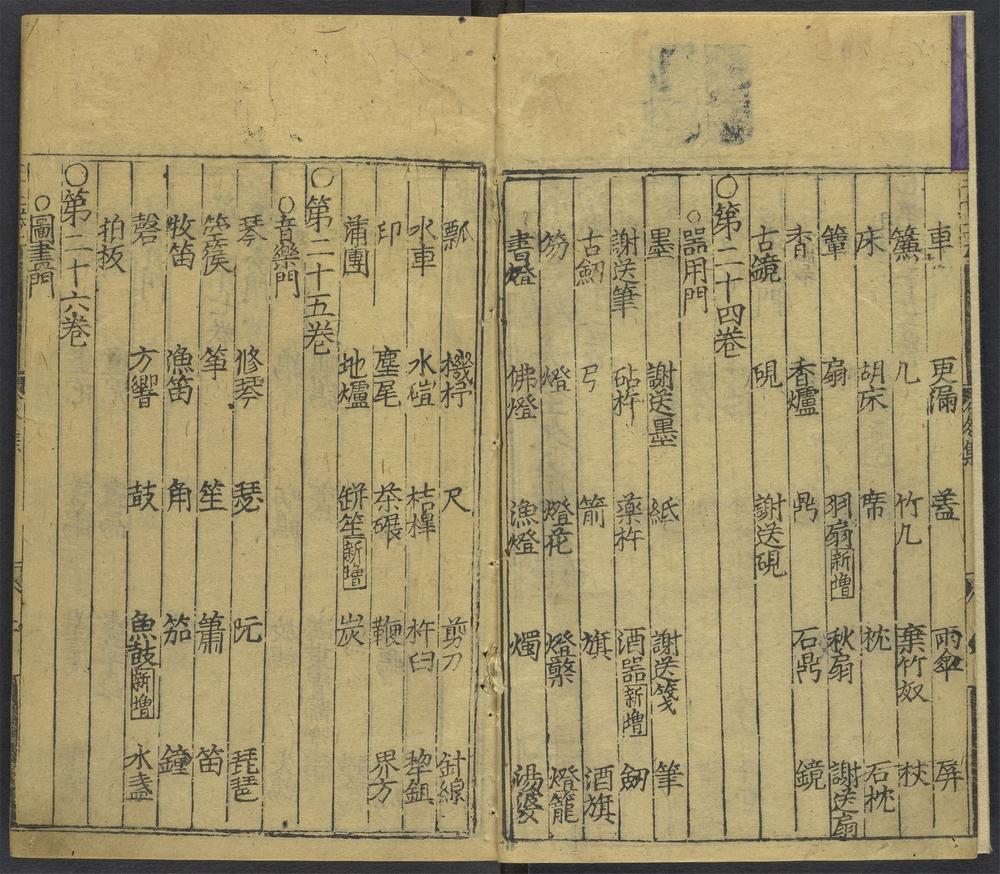 車 更漏 蓋 雨傘 屏
簾 几 竹几 棄竹奴 杖
床 胡床 席 枕 石枕
簟 扇 羽扇新增 秋扇 謝送扇
香 香爐 鼎 石鼎 鏡
古鏡 硯 謝送硯
○第二十四卷
○器用門
墨 謝送墨 紙 謝送箋 筆
謝送筆 砧杵 藥杵 酒器新增 劒
古劒 弓 箭 旗 酒旗
笏 燈 燈花 燈檠 燈籠
書燈 佛燈 漁燈 燭 湯婆
瓢 機杼 尺 剪刀 針線
水車 水磑 桔槹 杵臼 犂鉏
印 塵尾 茶碾 鞭 界方
蒲團 地爐 缾笙新增 炭
○第二十五卷
○音樂門
琴 修琴 瑟 阮 琵琶
箜篌 筝 笙 簫 笛
牧笛 漁笛 角 笳 鐘
磬 方響 鼓 魚鼓新增 水盞
拍板
○第二十六卷
○圖畫門